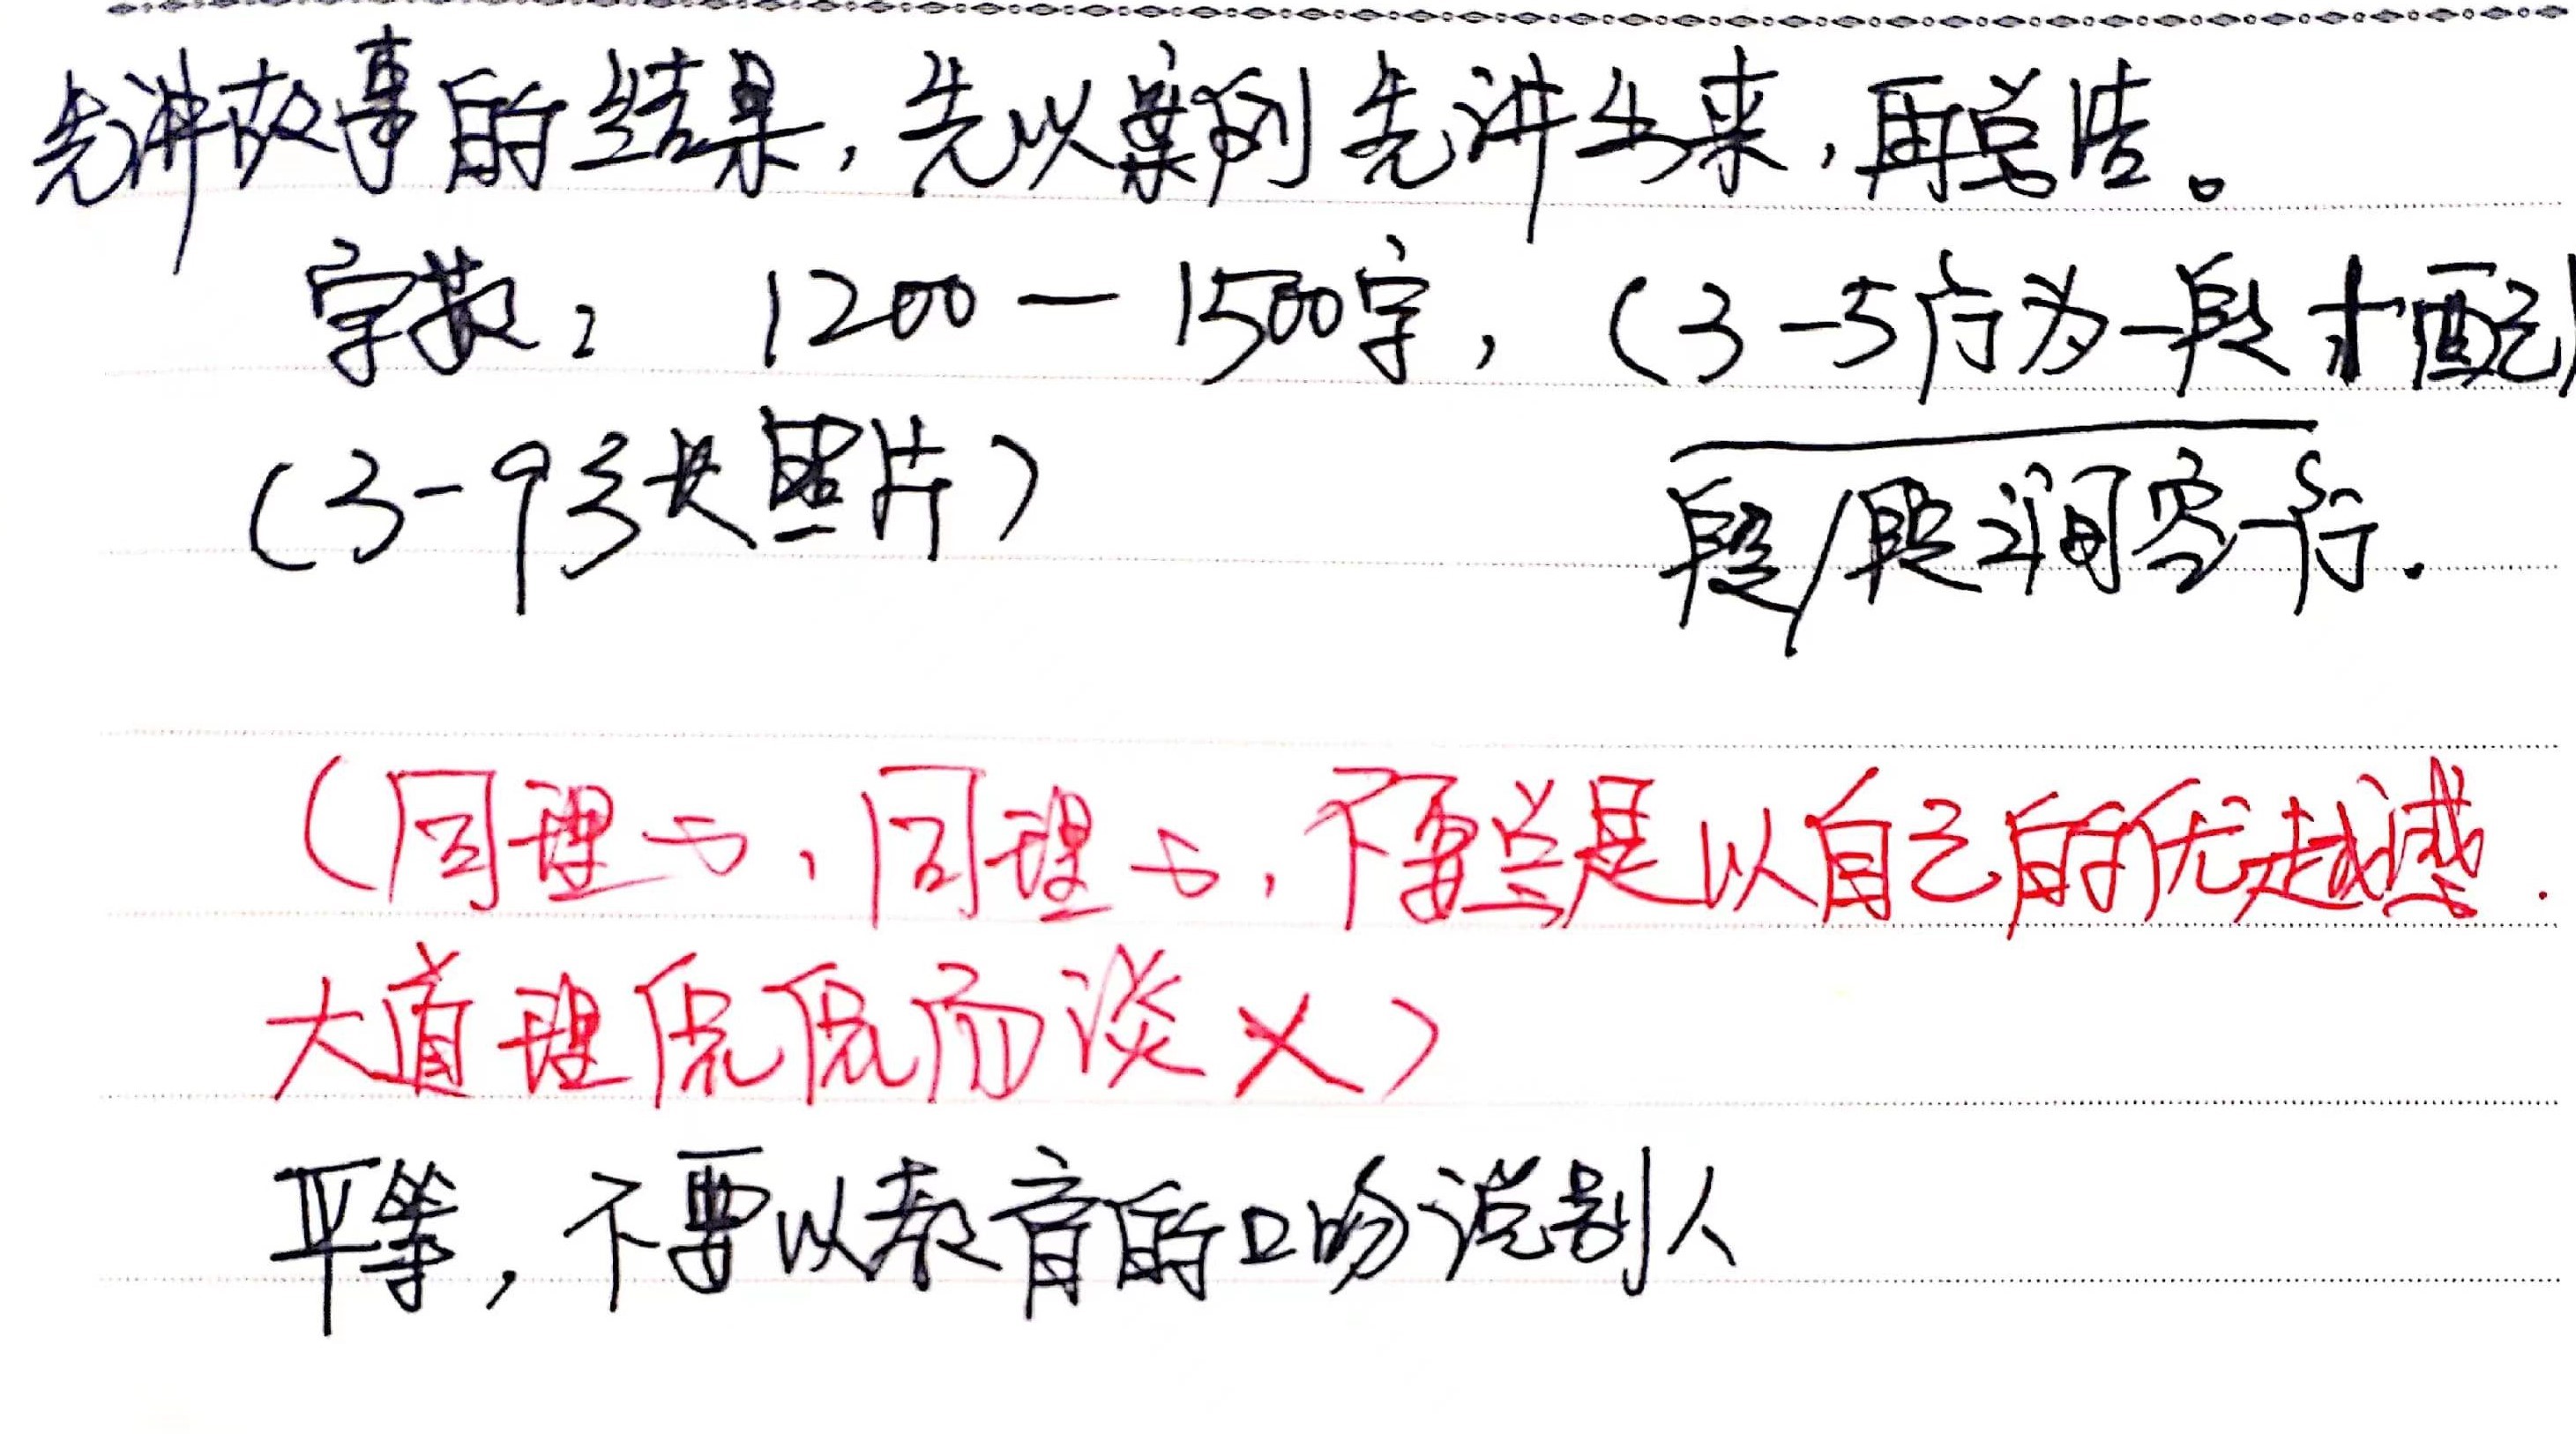 先讲故事的结果，先以案例先讲出来，再总结。
字数： 1200一1500字，（3－5行为一段才配）
（3－9张大照片） 段/段之间空一行.
（同理心、同理心，不要总是以自己的优越感.
大道理侃侃而谈×）
平等，不要以教育的口吻说别人